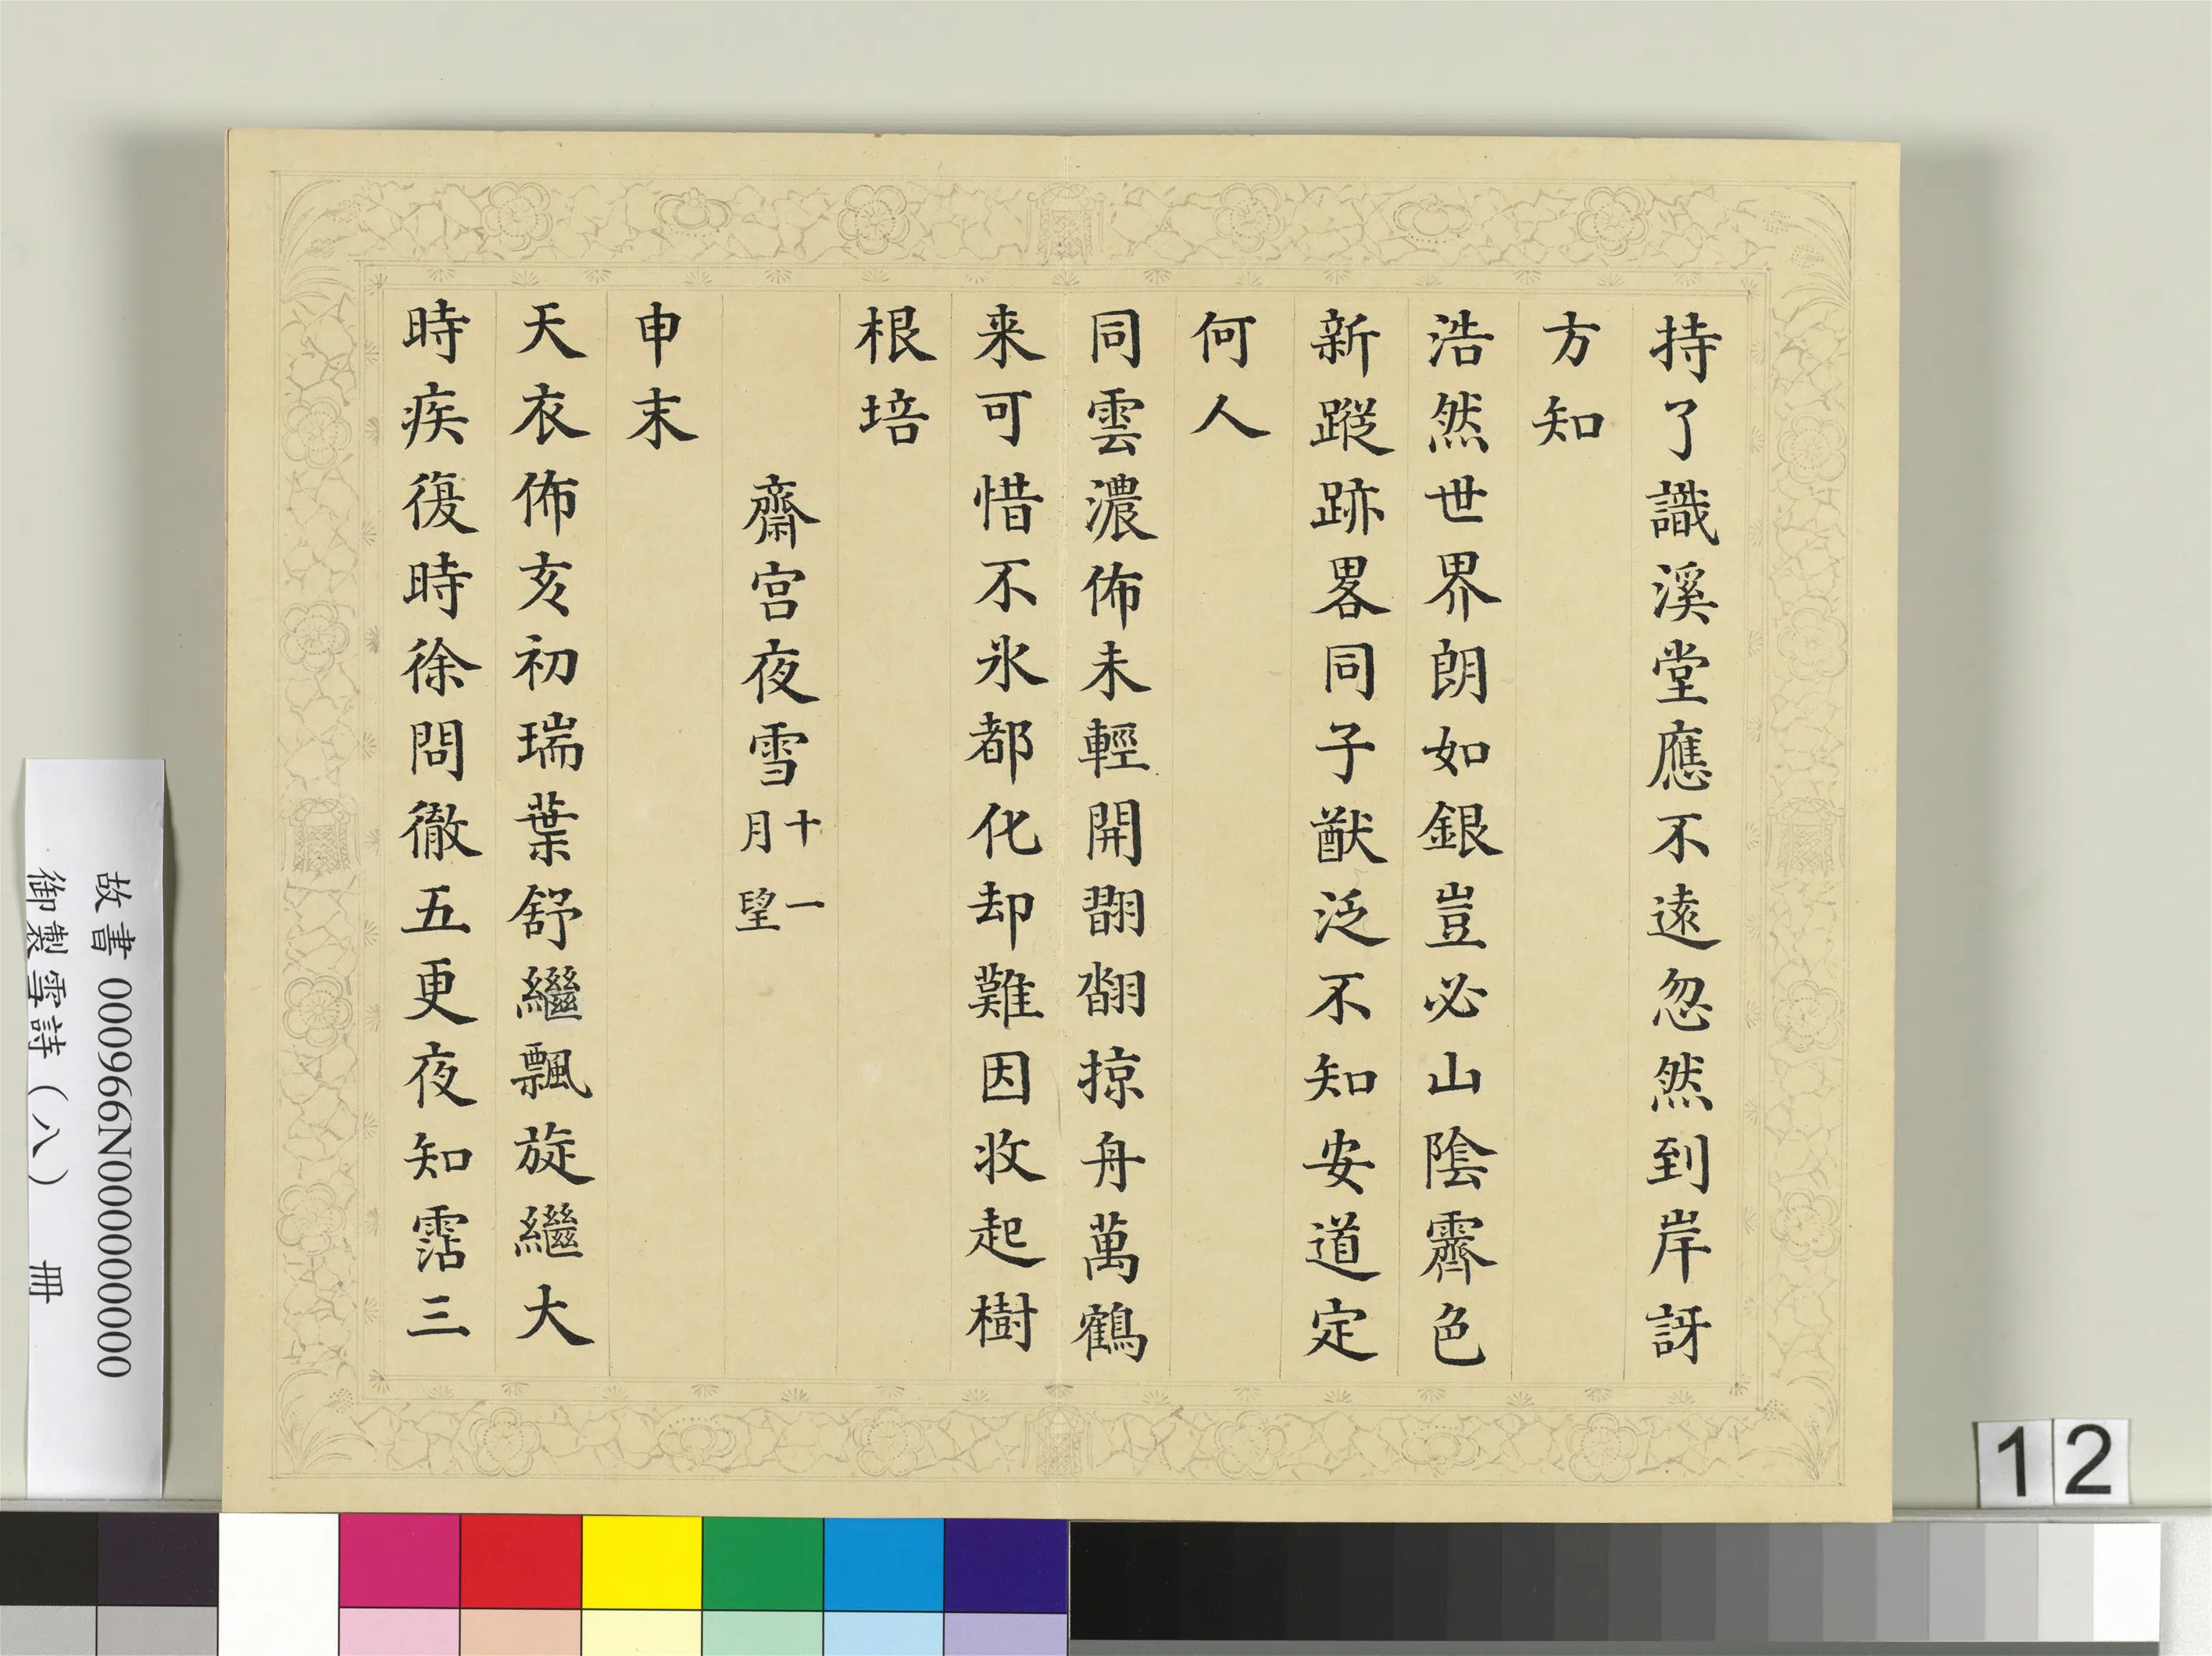 持了識溪堂應不遠忽然到岸訝
方知
浩然世界朗如銀豈必山陰霽色
新蹤跡畧同子猷泛不知安道定
何人
同雲濃佈未輕開翾翻掠舟萬鶴
来可惜不氷都化却難因收起樹
根培
齋宮夜雪十一月望
申末
天衣佈亥初瑞葉舒繼飄旋繼大
時疾復時徐問徹五更夜知霑三
故書 000966N000000000
御製雪詩(八) 冊
12